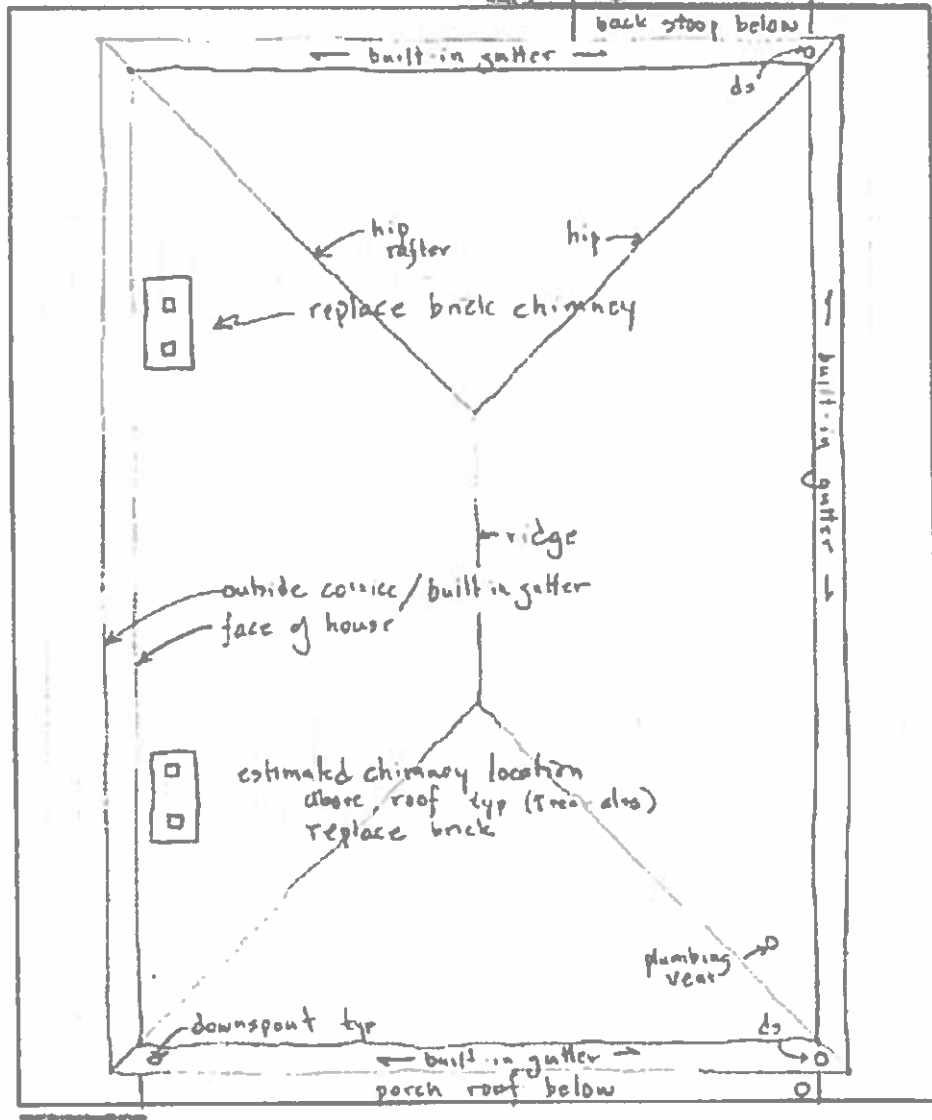 back stoop below
built-in gutter
ds
hip
rafter
hip
replace brick chimney
built-in gutter
ridge
outside cornice/built in gutter
face of house
estimated chimney location
above roof typ
replace brick
plumbing
vent
downspout typ
ds
built-in gutter
porch roof below